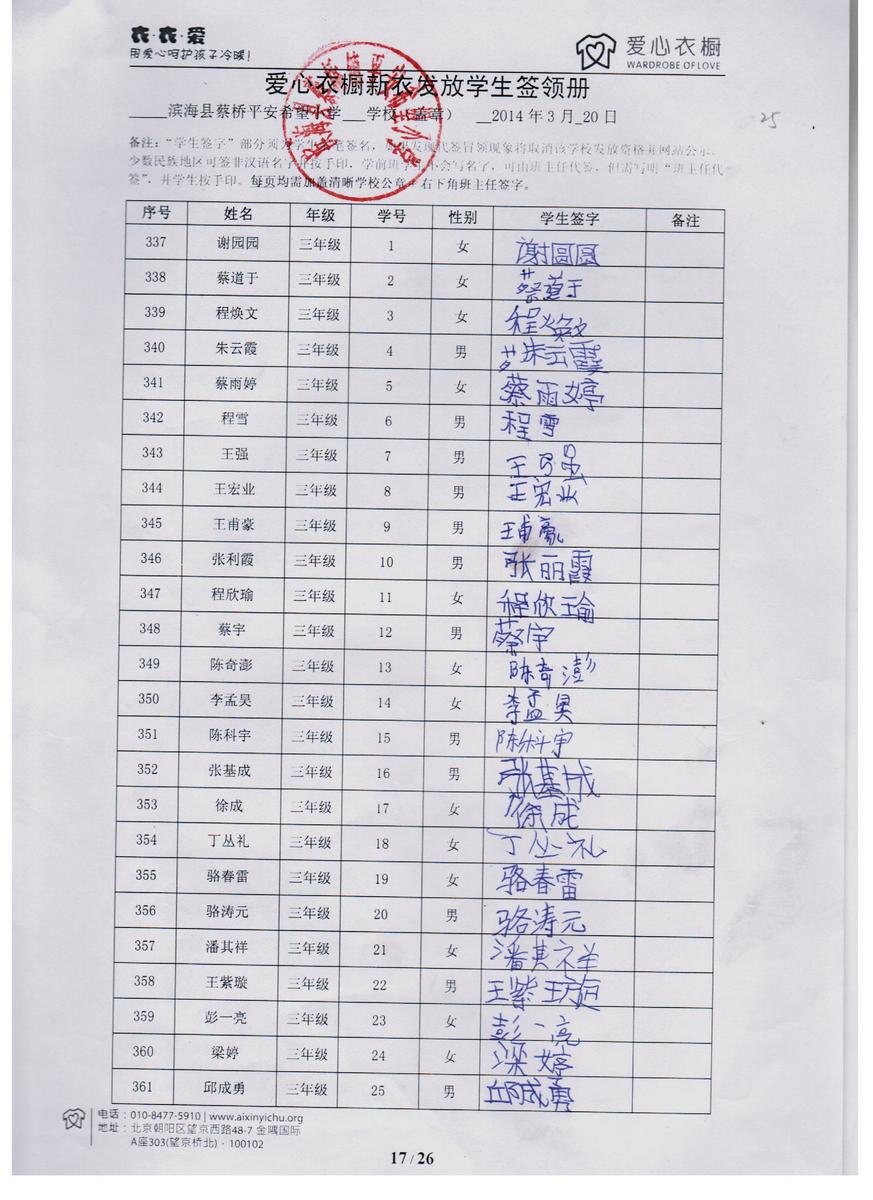 衣·衣·爱
用爱心呵护孩子冷暖!
爱心衣橱
WARDROBE OF LOVE
爱心衣橱新衣发放学生签领册
滨海县蔡桥平安希望小学 学校(盖章) 2014 年 3 月 20 日
25
备注:“学生签字”部分须为学生亲笔签名,如果发现代签冒领现象将取消该学校发放资格并网站公示。
少数民族地区可签非汉语名字并按手印,学前班学生不会写名字,可由班主任代签,但需写明“班主任代
签”,并学生按手印。每页均需加盖清晰学校公章,右下角班主任签字。
序号 姓名 年级 学号 性别 学生签字 备注
337 谢园园 三年级 1 女 谢圆圆
338 蔡道于 三年级 2 女 蔡道于
339 程焕文 三年级 3 女 程焕文
340 朱云霞 三年级 4 男 朱云霞
341 蔡雨婷 三年级 5 女 蔡雨婷
342 程雪 三年级 6 男 程雪
343 王强 三年级 7 男 王强
344 王宏业 三年级 8 男 王宏业
345 王甫豪 三年级 9 男 王甫豪
346 张利霞 三年级 10 男 张丽霞
347 程欣瑜 三年级 11 女 程欣瑜
348 蔡宇 三年级 12 男 蔡宇
349 陈奇澎 三年级 13 女 陈奇澎
350 李孟昊 三年级 14 女 李孟昊
351 陈科宇 三年级 15 男 陈科宇
352 张基成 三年级 16 男 张基成
353 徐成 三年级 17 女 徐成
354 丁丛礼 三年级 18 女 丁丛礼
355 骆春雷 三年级 19 女 骆春雷
356 骆涛元 三年级 20 男 骆涛元
357 潘其祥 三年级 21 女 潘其祥
358 王紫璇 三年级 22 男 王紫璇
359 彭一亮 三年级 23 女 彭一亮
360 梁婷 三年级 24 女 梁婷
361 邱成勇 三年级 25 男 邱成勇
电话:010-8477-5910 | www.aixinyichu.org
地址:北京朝阳区望京西路48-7 金隅国际
A座303(望京桥北)·100102
17 / 26